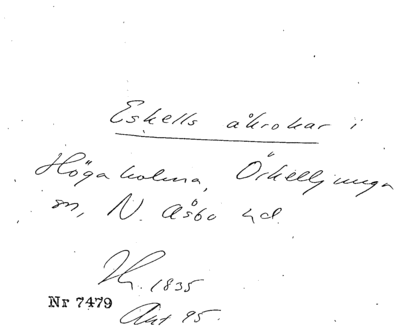 Eskells åkrokar i
Högaholma, Örkelljunga
sn, N. Åsbo hd
1835
Nr 7479
Akt 95.